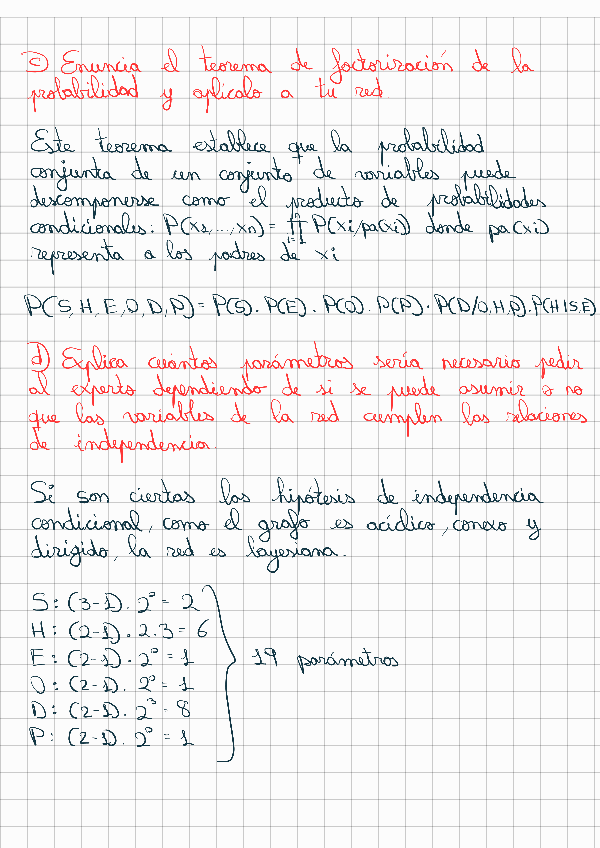 c) Enuncia el teorema de factorización de la
probabilidad y aplícalo a tu red
Este teorema establece que la probabilidad
conjunta de un conjunto de variables puede
descomponerse como el producto de probabilidades
condicionales: P(x1,...,xn) = ∏ⁿᵢ₌₁ P(xi/pa(xi)) donde pa(xi)
representa a los padres de xi
P(S,H,E,O,D,P) = P(S). P(E). P(O). P(P). P(D/O,H,P). P(H|S,E)
d) Explica cuántos parámetros sería necesario pedir
al experto dependiendo de si se puede asumir o no
que las variables de la red cumplen las relaciones
de independencia.
Si son ciertas las hipótesis de independencia
condicional, como el grafo es acíclico, conexo y
dirigido, la red es bayesiana.
S: (3-1). 2⁰ = 2
H: (2-1). 2.3 = 6
E: (2-1). 2⁰ = 1
19 parámetros
O: (2-1). 2⁰ = 1
D: (2-1). 2³ = 8
P: (2-1). 2⁰ = 1